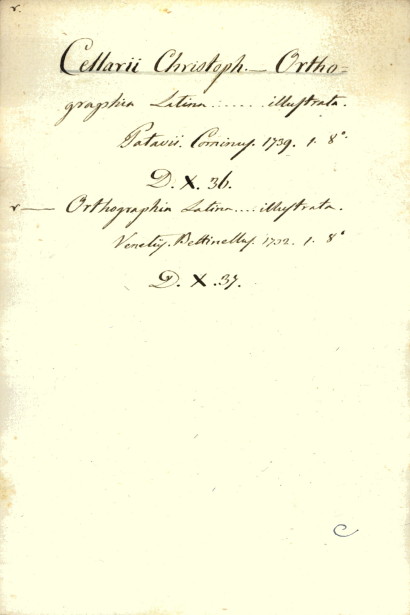 r.
Cellarii Christoph. — Ortho-
graphia Latina ...... illustrata.
Patavii. Cominus. 1739. 1. 8°.
D. X. 36.
r — Orthographia Latina .... illustrata.
Venetijs. Bettinellus. 1732. 1. 8°
D. X. 37.
C